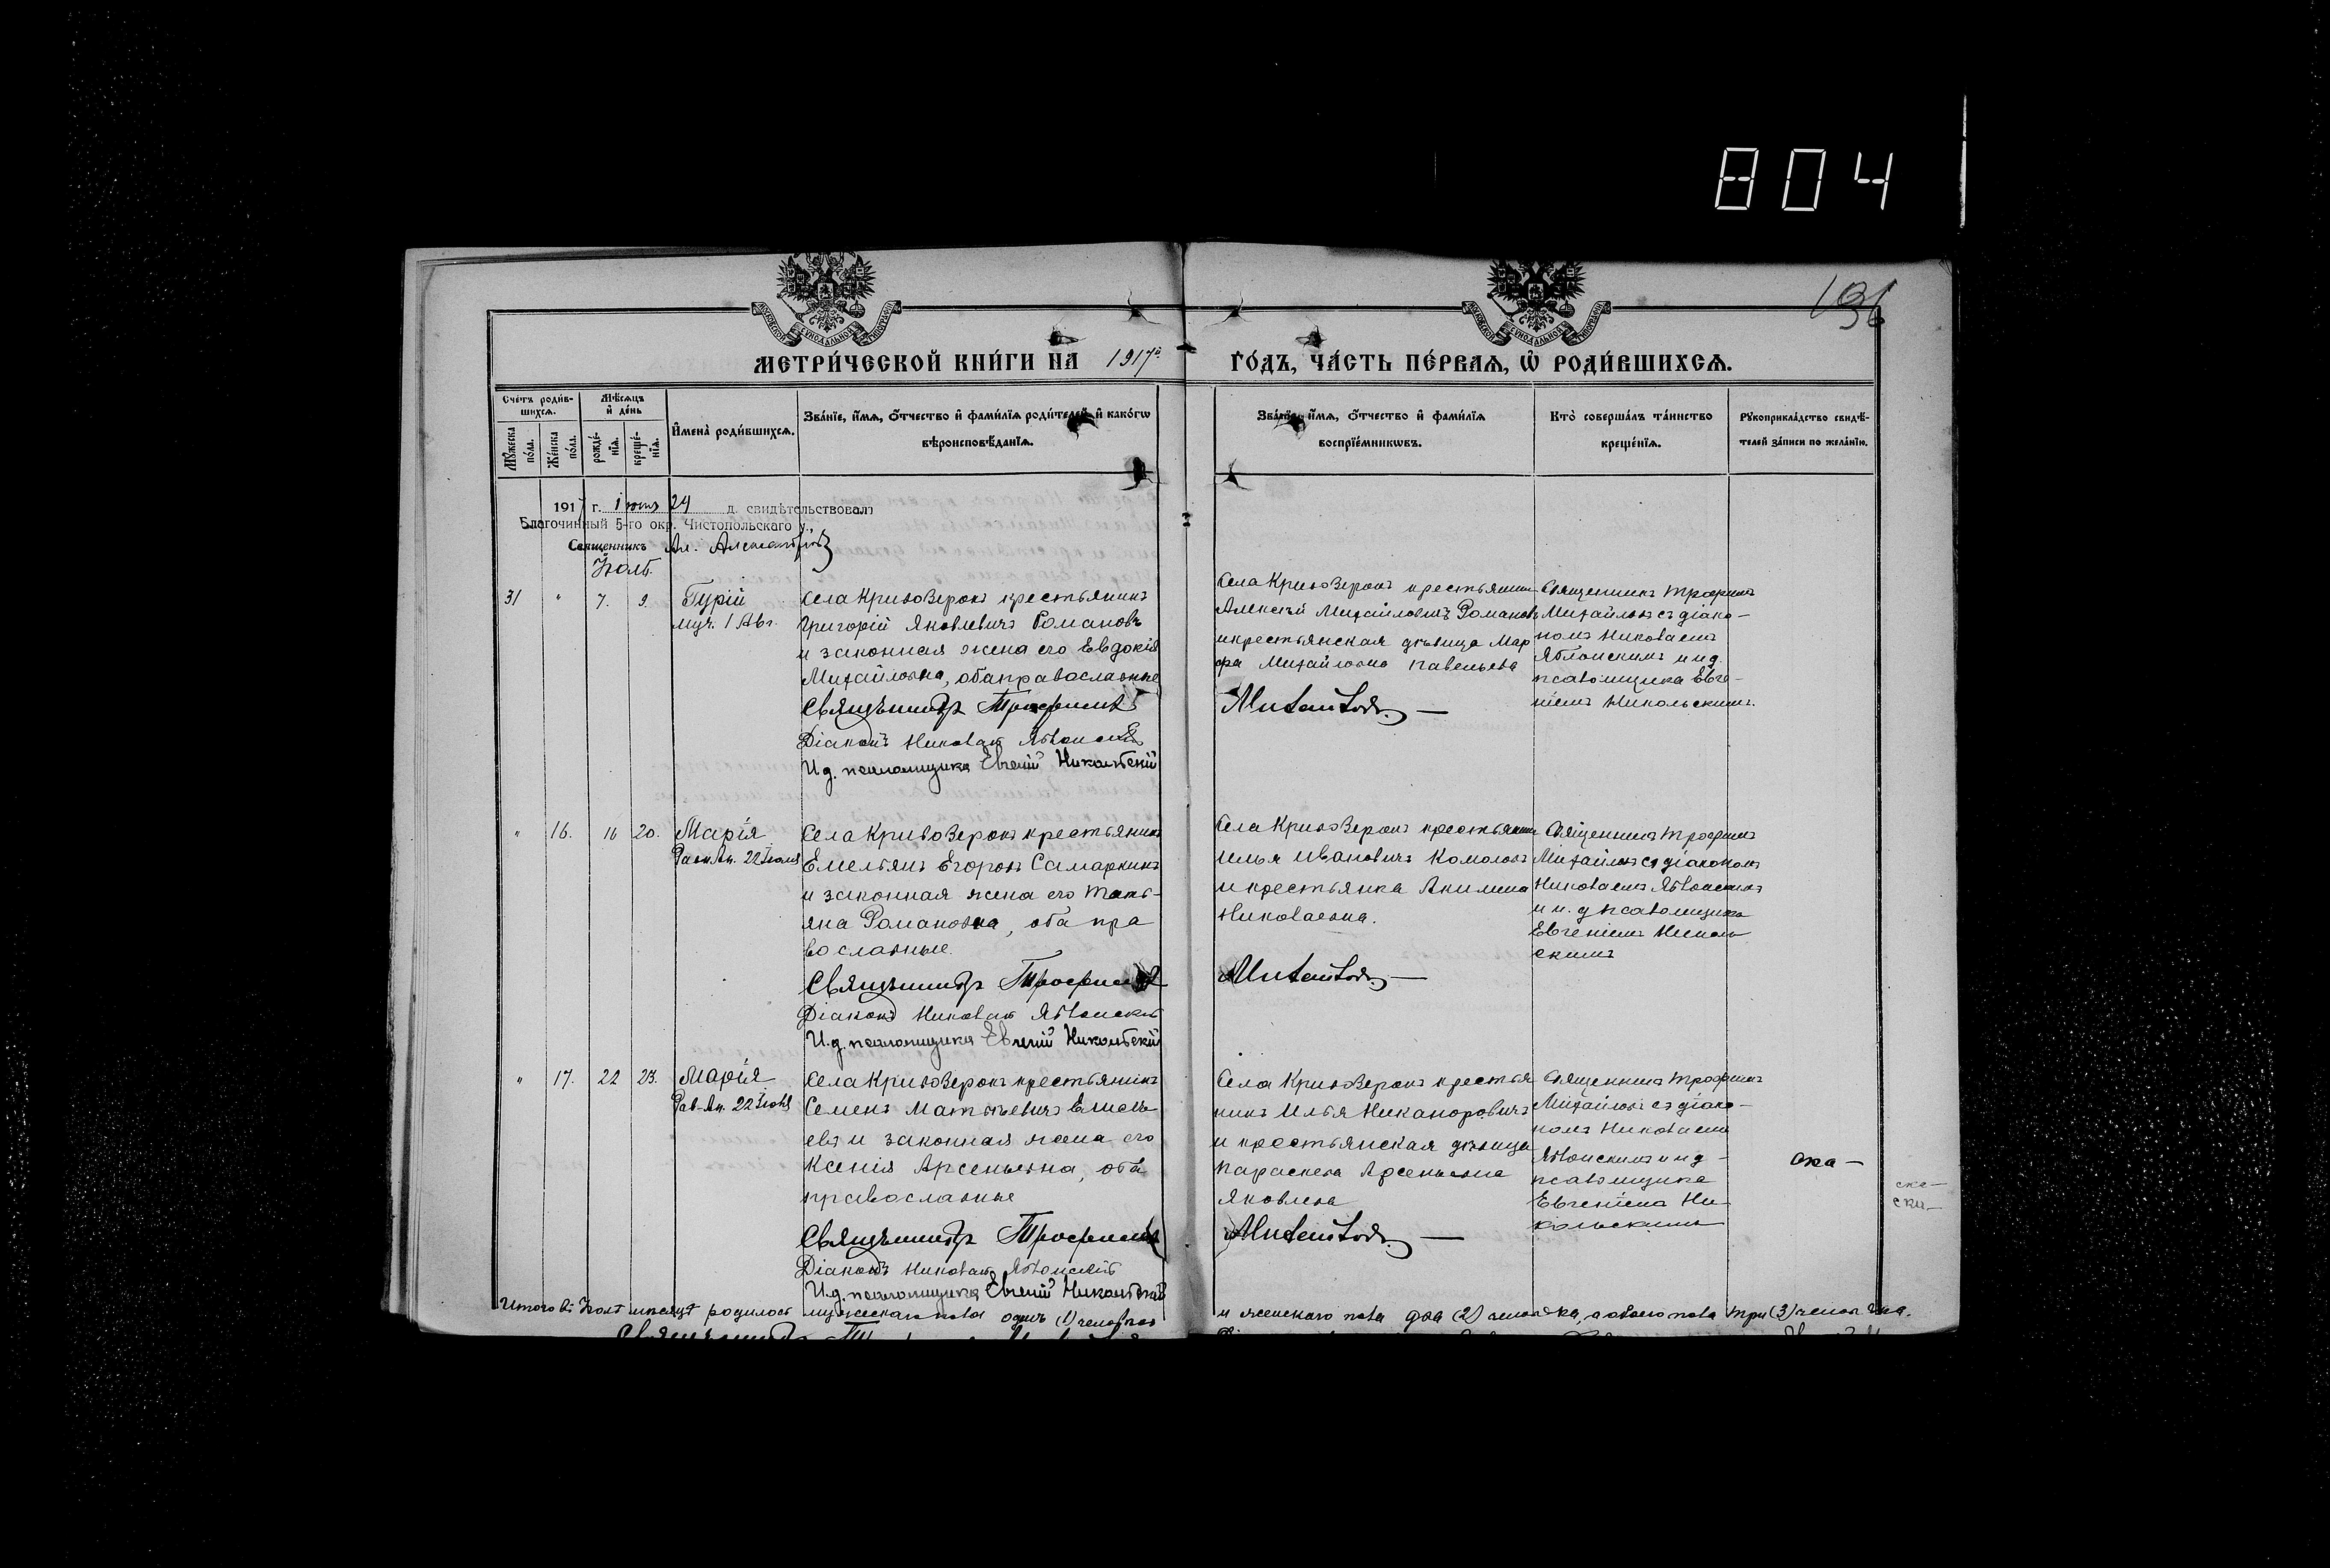 804
136
МЕТРИ́ЧЕСКОЙ КНИ́ГИ НА 1917й ГО́ДЪ, ЧА́СТЬ ПЕ́РВАЯ, Ѡ҆ РОДИ́ВШИХСЯ.
Сче́тъ роди́в-
шихся.
Мѣ́сяцъ
и҆ де́нь
Мꙋ́жеска
по́ла.
Же́нска
по́ла.
рожде́-
нїя.
креще́-
нїя.
И҆мена̀ роди́вшихся.
Зва́нїе, и҆́мя, ѻ҆́тчество и҆ фами́лїя роди́телей, и҆ како́гѡ
вѣроисповѣ́данїя.
Зва́нїе, и҆́мя, ѻ҆́тчество и҆ фами́лїя
воспрїе́мникѡвъ.
Кто̀ соверша́лъ та́инство
креще́нїя.
Рꙋкоприкла́дство свидѣ́-
телей за́писи по жела́нїю.
1917 г. Іюня 24 д. свидѣтельствовалъ
Благочинный 5-го окр. Чистопольскаго у.,
Священникъ Ал.
Іюль.
31 " 7. 9. Гурій
муч. 1 Авг.
Села Кривозерокъ крестьянинъ
Григорій Яковлевичъ Романовъ
и законная жена его Евдокія
Михайловна, оба православные
Священникъ Трофимъ
Діаконъ Николай Яблонскій
И.д. псаломщика Евгеній Никольскій
Села Кривозерокъ крестьянинъ
Алексѣй Михайловичъ Романовъ
и крестьянская дѣвица Мар
фа Михайловна Савельева
Михайловъ. —
Священникъ Трофимъ
Михайловъ съ діако-
номъ Николаемъ
Яблонскимъ и и.д.
псаломщика Евге-
ніемъ Никольскимъ.
" 16. 16 20. Марія
Равн.Ап. 22 Іюля
Села Кривозерокъ крестьянинъ
Емельянъ Егоровъ Самаркинъ
и законная жена его Тать-
яна Романовна, оба пра
вославные.
Священникъ Трофимъ
Діаконъ Николай Яблонскій
И.д. псаломщика Евгеній Никольскій
Села Кривозерокъ крестьянинъ
Илья Ивановичъ Комоловъ
и крестьянка Акилина
Николаевна.
Михайловъ. —
Священникъ Трофимъ
Михайловъ съ діакономъ
Николаемъ Яблонскимъ
и и. д псаломщика
Евгеніемъ Николь
скимъ
" 17. 22 23. Марія
Рав-Ап. 22 Іюля
Села Кривозерокъ крестьянинъ
Семенъ Матвѣевичъ Емель
евъ и законная жена его
Ксенія Арсеньевна, оба
православные
Священникъ Трофимъ
Діаконъ Николай Яблонскій
И.д. псаломщика Евгеній Никольскій
Села Кривозерокъ крестья
нинъ Илья Никаноровичъ
и крестьянская дѣвица
Параскева Арсеньевна
Яковлева
Михайловъ. —
Священникъ Трофимъ
Михайловъ съ діако-
номъ Николаемъ
Яблонскимъ и и д -
псаломщика
Евгеніемъ Ни-
кольскимъ
Итого въ Іюлѣ мѣсяцѣ родилось мужескаго пола одинъ (1) человѣкъ и женскаго пола два (2) человѣка, а обоего пола три (3) человѣка.